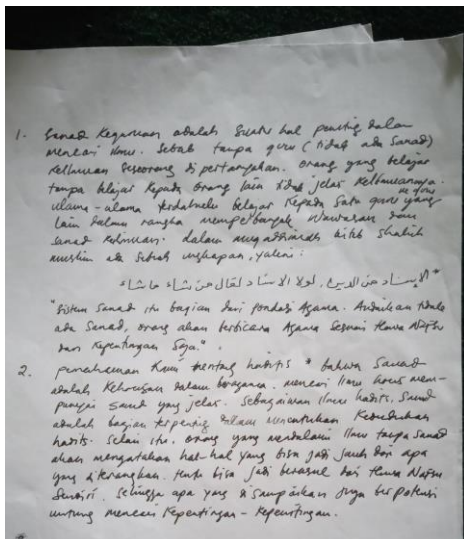 1. Sanad Keguruan adalah Suatu hal penting dalam
mencari ilmu. Sebab tanpa guru (tidak ada Sanad)
Keilmuan Seseorang dipertanyakan. Orang yang belajar
tanpa belajar Kepada orang lain tidak jelas Keilmuannya.
ulama-ulama terdahulu belajar Kepada Satu guru ke guru yang
lain dalam rangka memperbanyak Wawasan dan
Sanad Keilmuan. Dalam muqaddimah kitab Shahih
muslim ada Sebuah ungkapan, yakni:
"الإسناد من الدين، لولا الإسناد لقال من شاء ما شاء
"Sistem Sanad itu bagian dari pondasi Agama. Andaikan tidak
ada Sanad, orang akan berbicara Agama Sesuai Hawa Nafsu
dan Kepentingan Saja.".
2. pemahaman Kami tentang hadits * bahwa Sanad
adalah Keharusan dalam beragama. mencari Ilmu harus mem-
punyai Sanad yang jelas. Sebagaimana Ilmu hadits, Sanad
adalah bagian terpenting dalam menentukan Kedudukan
hadits. Selain itu, orang yang mendalami Ilmu tanpa Sanad
akan mengatakan hal-hal yang bisa jadi jauh dari apa
yang diterangkan. bisa jadi berasal dari Hawa Nafsu
Sendiri. Sehingga apa yang disampaikan juga berpotensi
untung mencari Kepentingan-Kepentingan.